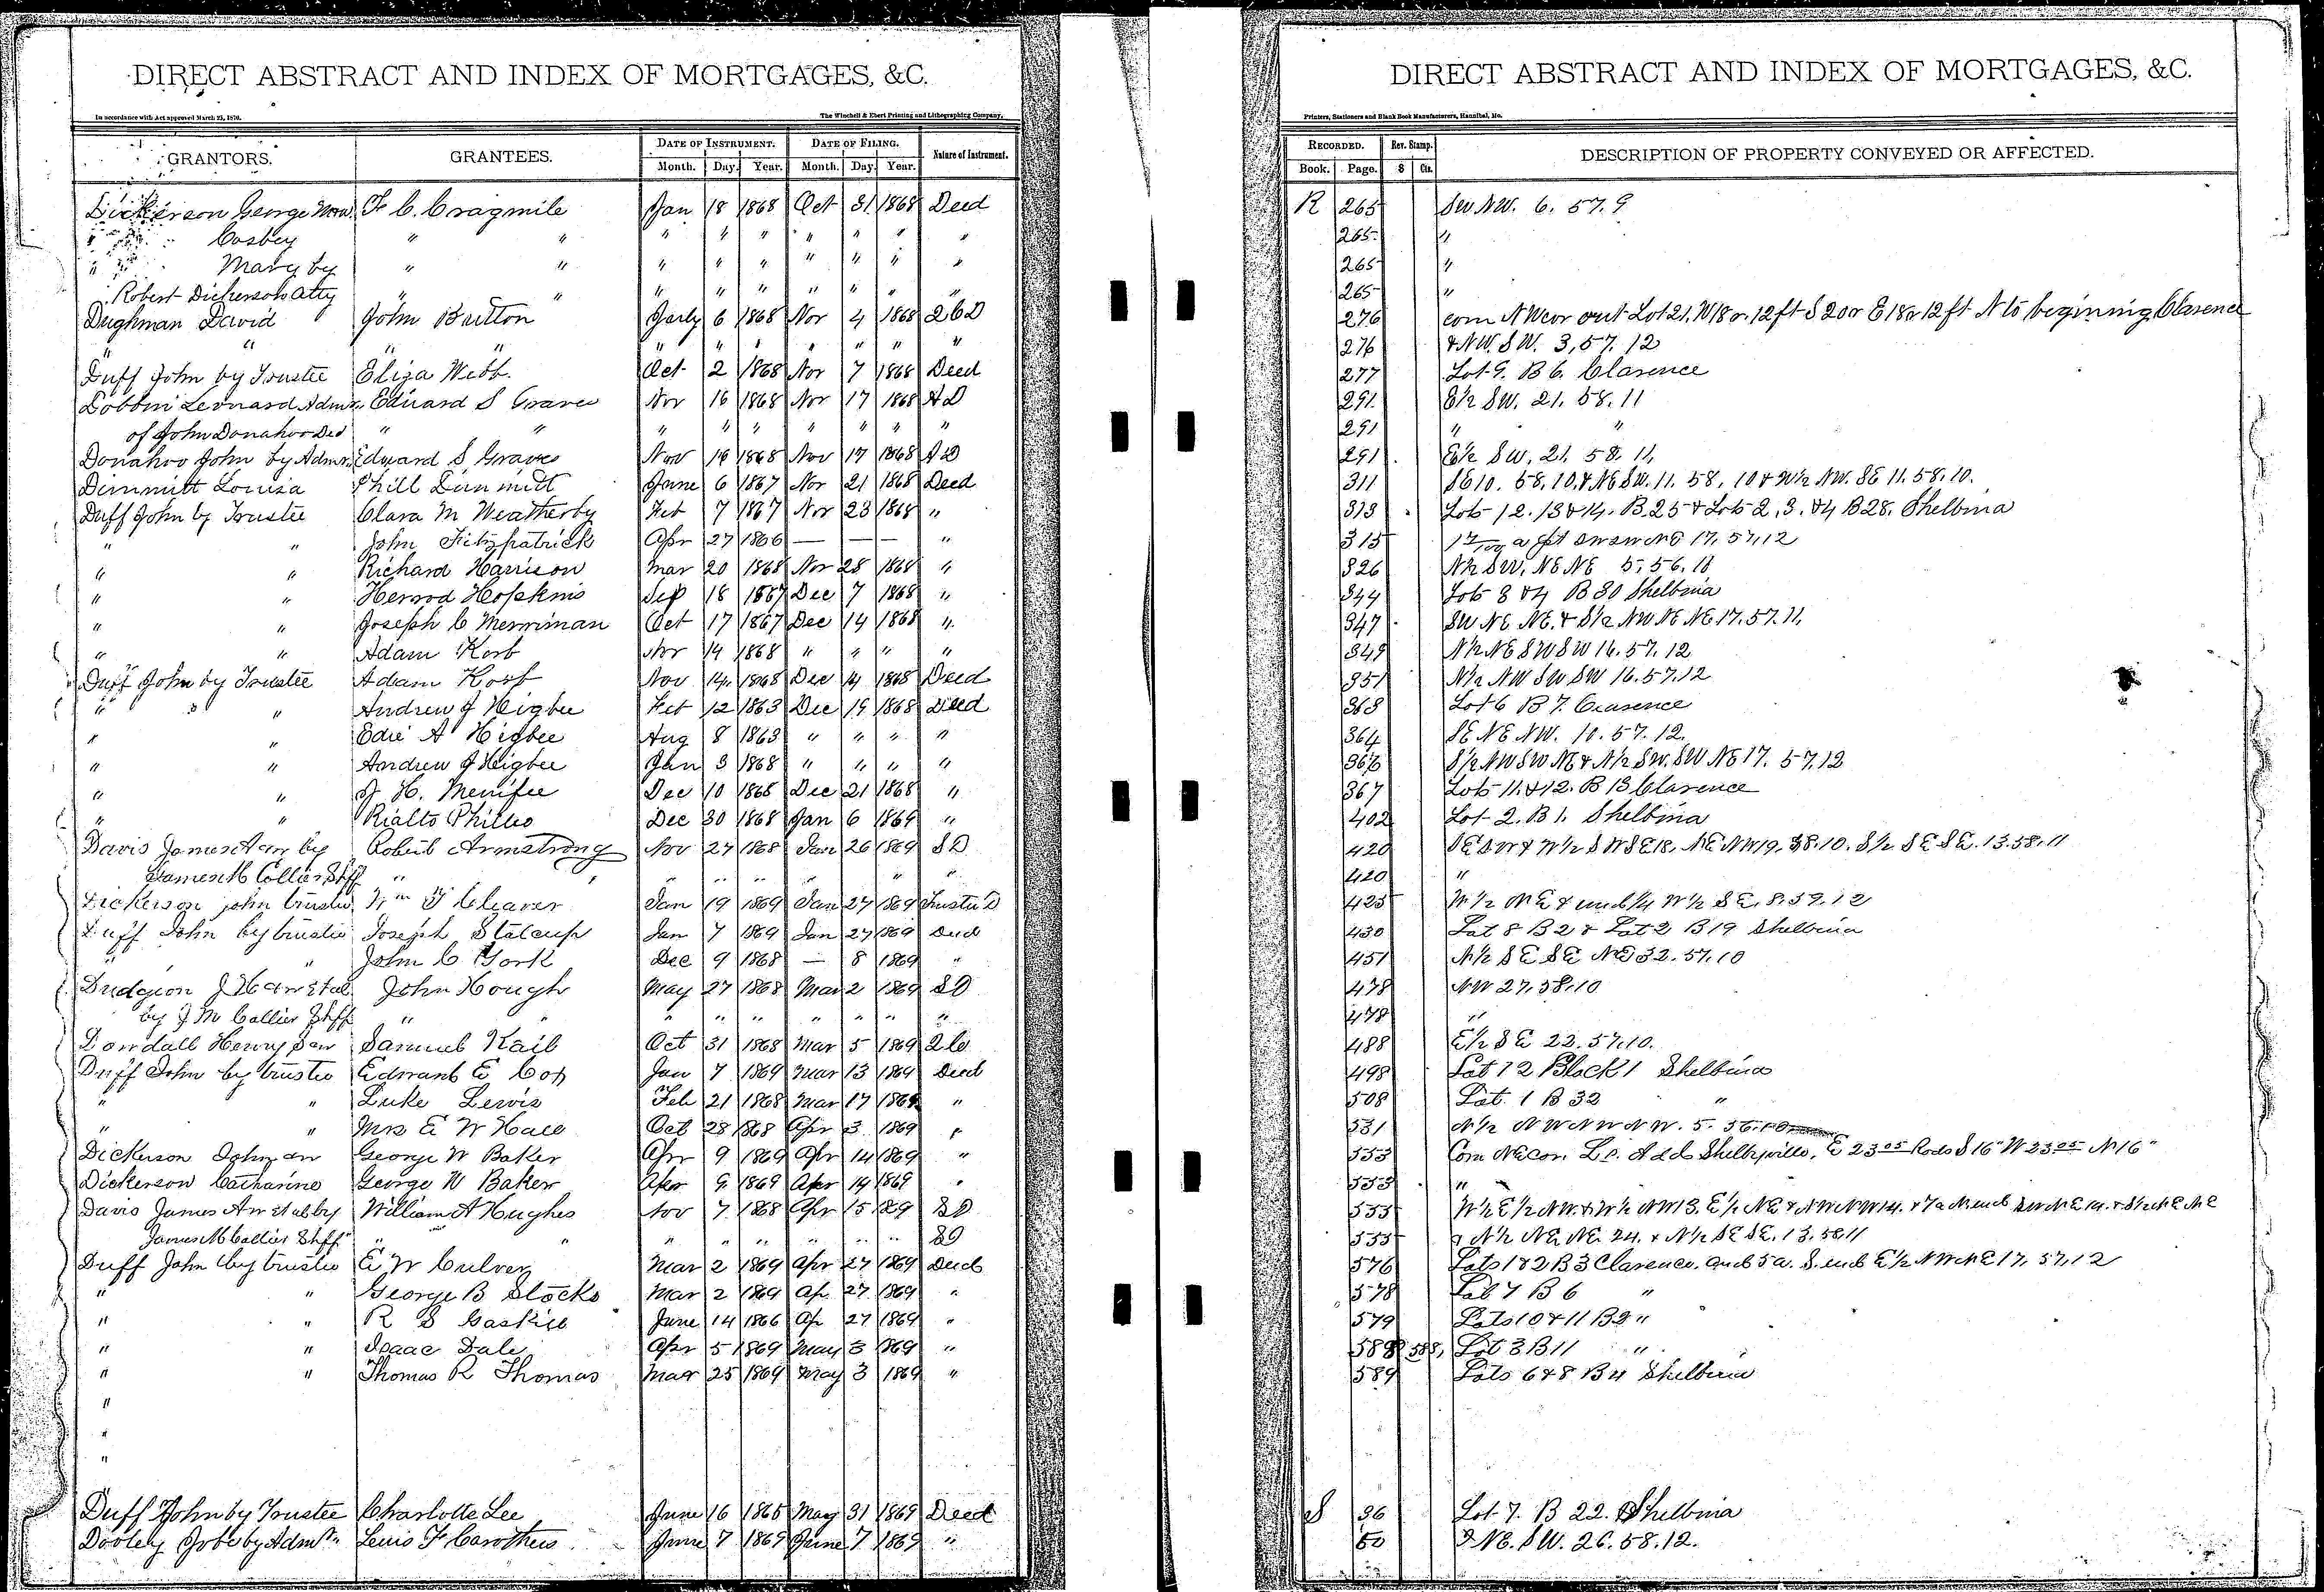 DIRECT ABSTRACT AND INDEX OF MORTGAGES, &C.
In accordance with Act approved March 23, 1870. The Winchell & Ebert Printing and Lithographing Company,
GRANTORS. GRANTEES. DATE OF INSTRUMENT. DATE OF FILING. Nature of Instrument.
Month. Day. Year. Month. Day. Year.
Dickerson George F. C. Cragmile Jan 18 1868 Oct 31 1868 Deed
" Cosbey " " " " " " " " "
" Mary by " " " " " " " " "
Robert Dickerson Atty " " " " " " " " "
Dughman David John Britton 6 1868 Nov 4 1868
" " " " " " " " " " "
Duff John by Trustee Eliza Webb. Oct 2 1868 Nov 7 1868 Deed
Leonard Admr Edward S Graves Nov 16 1868 Nov 17 1868 AD
of John Donahoo Decd " " " " " " " " "
Donahoo John by Admr Edward S Graves Nov 16 1868 Nov 17 1868 AD
Dimmitt Louisa Phill Dimmitt June 6 1867 Nov 21 1868 Deed
Duff John by Trustee Clara M Weatherby Feb 7 1867 Nov 23 1868 "
" " John Fitzpatrick Apr 27 1866 — — — "
" " Richard Harrison Mar 20 1868 Nov 28 1868 "
" " Hopkins Sep 18 1867 Dec 7 1868 "
" " Joseph C Merriman Oct 17 1867 Dec 14 1868 "
" " Adam Korb Nov 14 1868 " " " "
Duff John by Trustee Adam Korb Nov 14 1868 Dec 14 1868 Deed
" " Andrew J Higbee Feb 12 1863 Dec 19 1868 Deed
" " Edie A Higbee Aug 8 1863 " " " "
" " Andrew J Higbee Jan 3 1868 " " " "
" " J. H. Menifee Dec 10 1868 Dec 21 1868 "
" " Rialto Philes Dec 30 1868 Jan 6 1869 "
Davis James by Robert Armstrong Nov 27 1868 Jan 26 1869 SD
James M Collier Shff " " " " " " " " "
Dickerson John trustee Wm T Cleaver Jan 19 1869 Jan 27 1869 D
Duff John by trustee Joseph Stalcup Jan 7 1869 Jan 27 1869 Deed
" " John C York Dec 9 1868 — 8 1869 "
Dudgeon J H John Hough May 27 1868 Mar 2 1869 SD
by J M Collier Shff " " " " " " " " "
Dowdall Henry Samuel Kail Oct 31 1868 Mar 5 1869
Duff John by trustee Edward E Cox Jan 7 1869 Mar 13 1869 Deed
" " Luke Lewis Feb 21 1868 Mar 17 1869 "
" " Mrs E W Hall Oct 28 1868 Apr 3 1869 "
Dickerson John George W Baker Apr 9 1869 Apr 14 1869 "
Dickerson Catharine George W Baker Apr 9 1869 Apr 14 1869 "
Davis James by William A Hughes Nov 7 1868 Apr 15 1869 SD
James M Collier Shff " " " " " " " " SD
Duff John by trustee E W Culver Mar 2 1869 Apr 27 1869 Deed
" " George B Stocks Mar 2 1869 Ap 27 1869 "
" " R S Gaskill June 14 1866 Ap 27 1869 "
" " Isaac Dale Apr 5 1869 May 3 1869 "
" " Thomas R Thomas Mar 25 1869 May 3 1869 "
"
"
"
"
Duff John by Trustee Charlotte Lee June 16 1865 May 31 1869 Deed
Dooley by Admr Lewis F Carothers June 7 1869 June 7 1869 "
DIRECT ABSTRACT AND INDEX OF MORTGAGES, &C.
Printers, Stationers and Blank Book Manufacturers, Hannibal, Mo.
RECORDED. Rev. Stamp. DESCRIPTION OF PROPERTY CONVEYED OR AFFECTED.
Book. Page. $ Cts.
R 265 SW NW. 6. 57. 9
265 "
265 "
265 "
276 com NW cor out Lot 21. W 18 r. 12 ft S 20 r E 18 r 12 ft N to beginning Clarence
276 & NW. SW. 3, 57, 12
277 Lot 9. B 6. Clarence
291 E½ SW. 21. 58. 11
291 " "
291 E½ SW. 21. 58. 11,
311 SE 10. 58. 10. & NE SW. 11. 58. 10 & W½ NW. SE 11. 58. 10.
313 Lots 12. 13 & 14. B. 25 & Lots 2, 3. & 4 B 28. Shelbina
315 SW SW NE 17, 57, 12
326 N½ SW, NE NE 5. 56. 11
344 Lots 3 & 4 B 30 Shelbina
347 SW NE NE. & S½ NW NE NE 17. 57. 11.
349 N½ NE SW SW 16. 57. 12
351 N½ NW SW SW 16. 57. 12
363 Lot 6 B 7. Clarence
364 SE NE NW. 10. 57. 12.
366 S½ NW SW NE & N½ SW. SW NE 17. 57. 12
367 Lots 11 & 12. B 13 Clarence
402 Lot 2. B 1. Shelbina
420 SE SW & W½ SW SE 18. NE NW 19. 58. 10. S½ SE SE. 13. 58. 11
420 "
425 W½ NE & und ¼ W½ SE. 8. 59. 12
430 Lot 8 B 2 & Lot 2 B 19 Shelbina
451 N½ SE SE NE 32. 57. 10
478 NW 27. 58. 10
478 "
488 E½ SE 22. 57. 10.
498 Lot 12 Block 1 Shelbina
508 Lot 1 B 32 "
531 N½ NW NW NW. 5. 56. 10
553 Com NE cor. Add Shelbyville, E 23 05 Rods S 16" W 23 05 N 16"
553 "
555 W½ E½ NW. & W½ NW 13. E½ NE & NW NW 14.
555 & N½ NE NE. 24. & N½ SE SE. 13. 58. 11
576 Lots 1 & 2 B 3 Clarence. and 5 a. S. end E½ NW NE 17. 57, 12
578 Lot 7 B 6 "
579 Lots 10 & 11 B 2 "
588 588, Lot 3 B 11 "
589 Lots 6 & 8 B 4 Shelbina
S 36 Lot 7. B 22. Shelbina
50 NE. SW. 26. 58. 12.